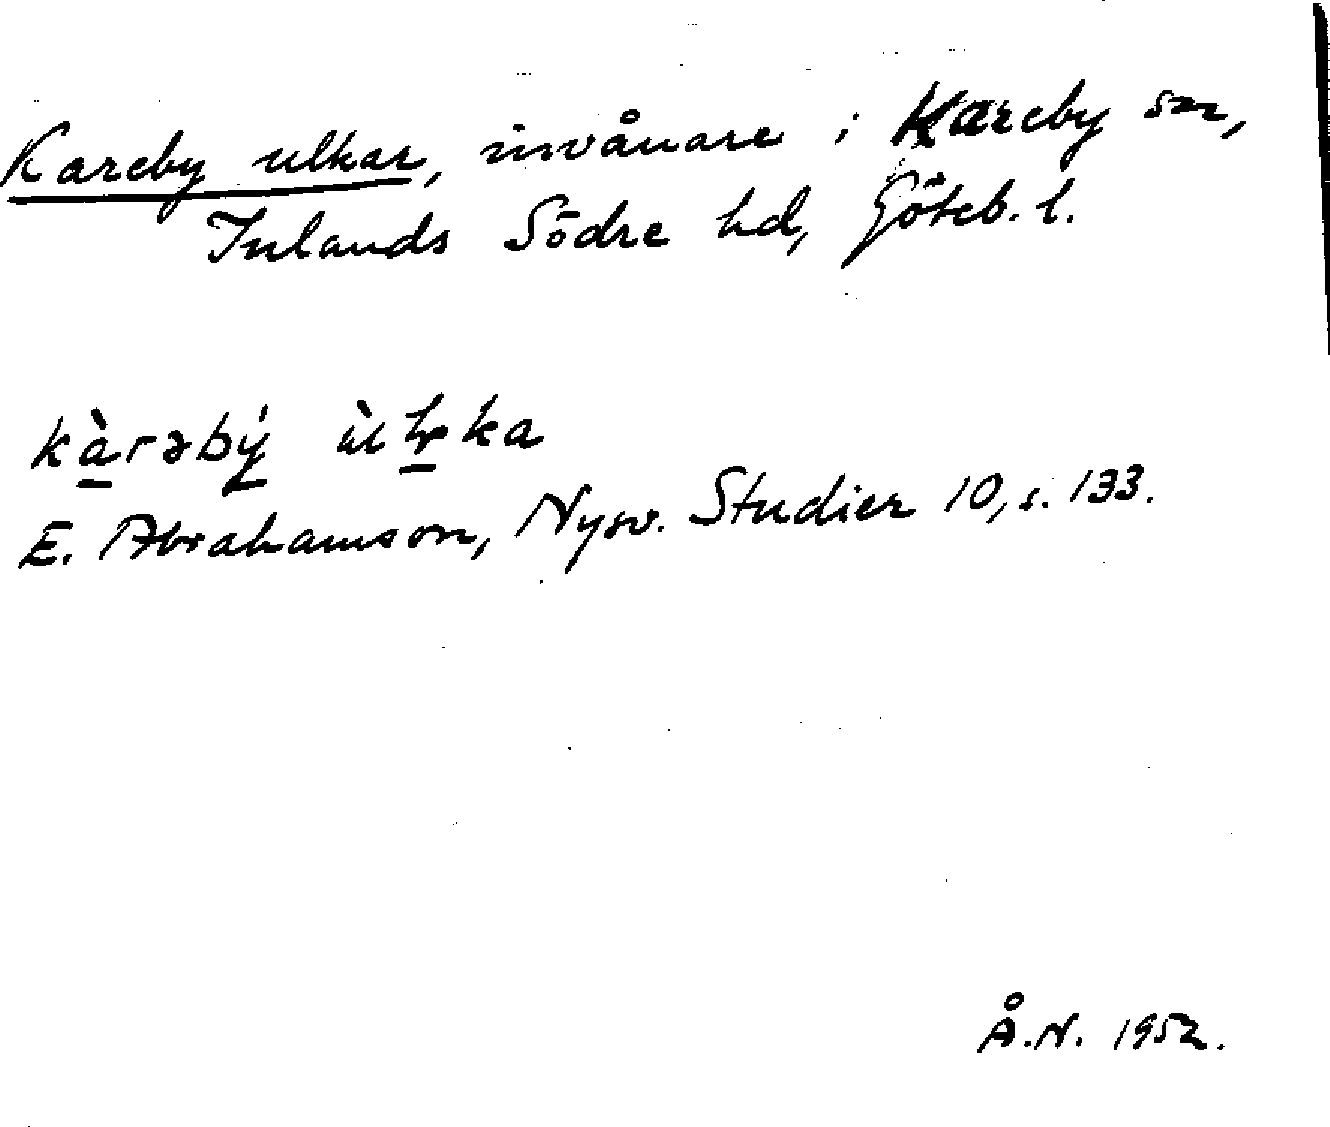 Kareby ulkar, invånare i Kareby sn,
Inlands Södre hd, Göteb. l.
E. Abrahamson, Nysv. Studier 10, s. 133.
Å.N. 1952.